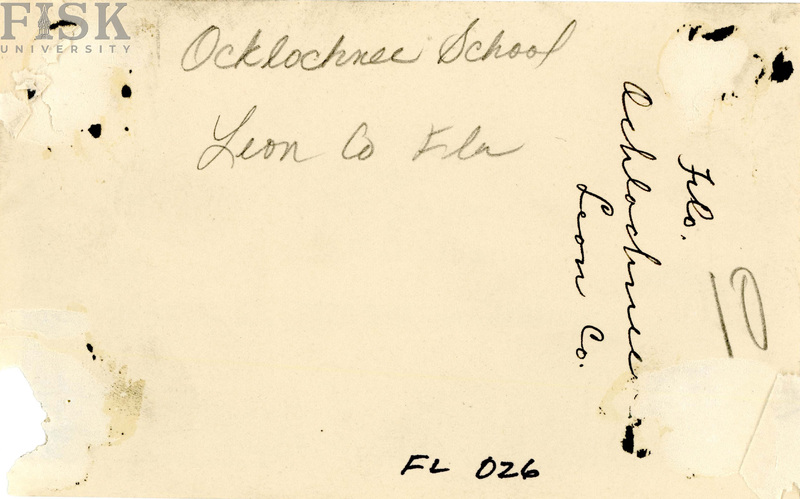 FISK
UNIVERSITY
Ocklochnee School
Leon Co Fla
Fla.
Ochlochnee
Leon Co.
FL 026